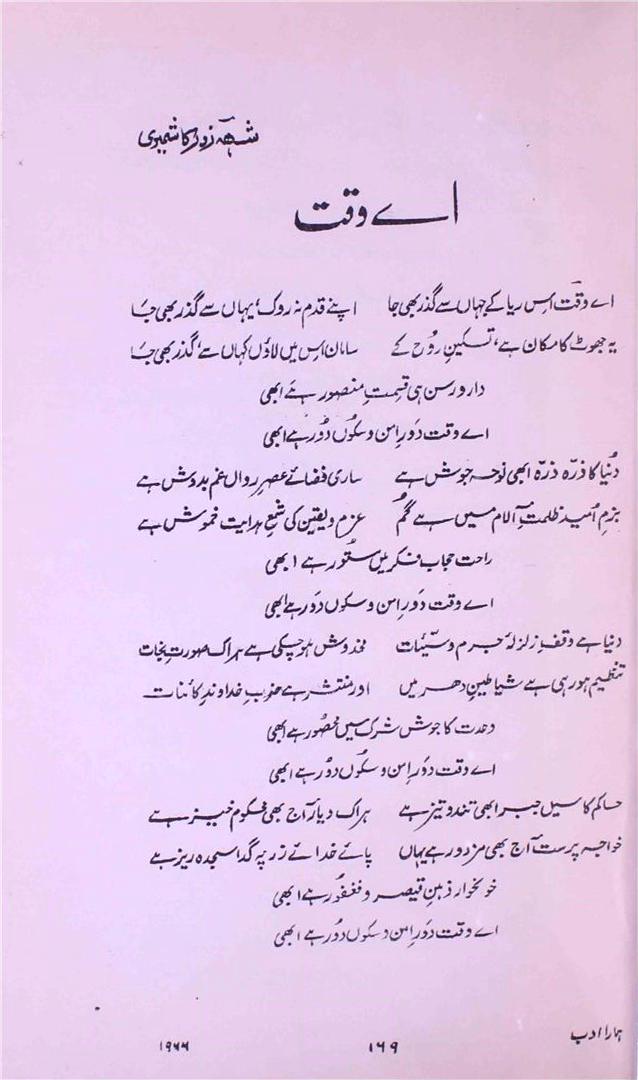 شہہ زور کاشمیری
اے وقت
اے وقت اس ریا کے جہاں سے گذر بھی جا اپنے قدم نہ روک، یہاں سے گذر بھی جا
یہ جھوٹ کا مکان ہے، تسکینِ روح کے سامان اس میں لاؤں کہاں سے، گذر بھی جا
دار و رسن ہی قسمتِ منصور ہے ابھی
اے وقت دَورِ امن و سکوں دُور ہے ابھی
دُنیا کا ذرّہ ذرّہ ابھی نوحہ جوش ہے ساری فضائے عصرِ رواں غم بدوش ہے
بزمِ اُمید ظلمتِ آلام میں ہے گُم عزم و یقین کی شمعِ ہدایت خموش ہے
راحت حجابِ فکر میں مستُور ہے ابھی
اے وقت دَورِ امن و سکوں دُور ہے ابھی
دنیا ہے وقفِ زلزلۂ جرم و سیّئات مخدوش ہو چکی ہے ہر اک صورتِ نجات
تنظیم ہو رہی ہے شیاطینِ دھر میں اور منتشر ہے حزبِ خداوندِ کائنات
وحدت کا جوش شرک میں محصُور ہے ابھی
اے وقت دَورِ امن و سکوں دُور ہے ابھی
حاکم کا سیلِ جبر ابھی تند و تیز ہے ہر اک دیار آج بھی محکوم خیز ہے
خواجہ پرست آج بھی مزدور ہے یہاں پائے خدائے زر پہ گدا سجدہ ریز ہے
خونخوار ذہنِ قیصر و فغفُور ہے ابھی
اے وقت دَورِ امن و سکوں دُور ہے ابھی
ہمارا ادب
۱۶۹
۱۹۶۶